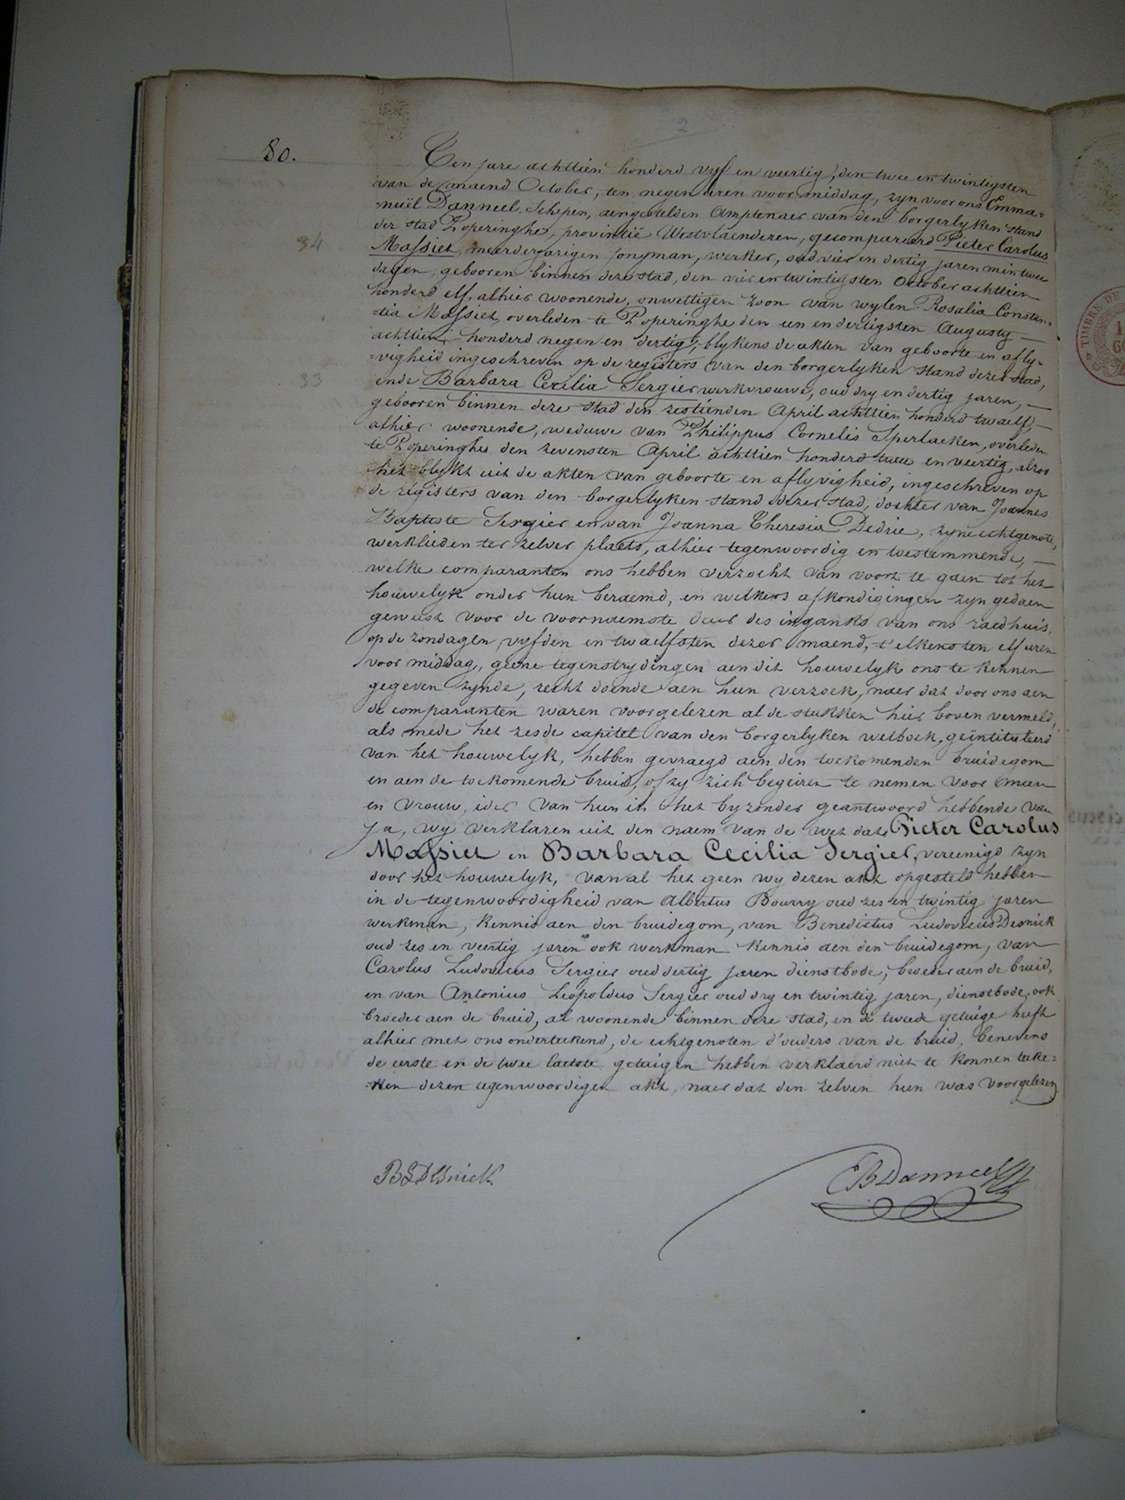 2
80.
Ten jare achttien honderd vyf en veertig, den twee en twintigsten
van de maend October, ten negen uren voormiddag, zyn voor ons Emma-
nuël Danneel, Schepen, aengestelden Amptenaer van den borgerlyken stand
der stad Poperinghe, provintie Westvlaenderen, gecompareerd Pieter Carolus
34
Massiet, meerderjarigen jongman, werker, oud vier en dertig jaren min twee
dagen, gebooren binnen deze stad, den vier en twintigsten October achttien
honderd elf, alhier woonende, onwettigen zoon van wylen Rosalia Constan-
tia Massiet, overleden te Poperinghe den een en dertigsten Augusty
achttien honderd negen en dertig, blykens de akten van geboorte en afly-
vigheid ingeschreven op de registers van den borgerlyken stand dezer stad,
33
ende Barbara Cecilia Sergier werkvrouwe, oud dry en dertig jaren,
gebooren binnen deze stad den zestienden April achttien honderd twaelf,
alhier woonende, weduwe van Philippus Cornelis Sperlaeken, overleden
te Poperinghe den zevensten April achttien honderd twee en veertig, alzoo
het blykt uit de akten van geboorte en aflyvigheid, ingeschreven op
de registers van den borgerlyken stand dezer stad, dochter van Joannes
Baptiste Sergier en van Joanna Theresia Dedrie, zyne echtgenote,
werklieden ter zelver plaets, alhier tegenwoordig en toestemmende,
welke comparanten ons hebben verzocht van voort te gaen tot het
houwelyk onder hun beraemd, en welkers afkondigingen zyn gedaen
geweest voor de voornaemste deur des inganks van ons raedhuis,
op de zondagen vyfden en twaelfsten dezer maend, t'elkens ten elf uren
voor middag, geene tegenstrydingen aen dit houwelyk ons te kennen
gegeven zynde, recht doende aen hun verzoek, naer dat door ons aen
de comparanten waren voorgelezen al de stukken hier boven vermeld,
als mede het zesde capitel van den borgerlyken wetboek, geïntituleerd
van het houwelyk, hebben gevraegd aen den toekomenden bruidegom
en aen de toekomende bruid, of zy zich begeiren te nemen voor man
en vrouw, ider van hun in het byzonder geantwoord hebbende van
ja, wy verklaren uit den naem van de wet dat Pieter Carolus
Massiet en Barbara Cecilia Sergier, vereenigd zyn
door het houwelyk, van al het geen wy dezen akt opgesteld hebben
in de tegenwoordigheid van Albertus Bourry oud zes en twintig jaren
werkman, kennis aen den bruidegom, van Benedictus Ludovicus Desnick
oud zes en veertig jaren ook werkman kennis aen den bruidegom, van
Carolus Ludovicus Sergier oud dertig jaren dienstbode, broeder aen de bruid,
en van Antonius Leopoldus Sergier oud dry en twintig jaren, dienstbode, ook
broeder aen de bruid, al woonende binnen deze stad, en de tweede getuige heeft
alhier met ons onderteekend, de echtgenoten d'ouders van de bruid, benevens
de eerste en de twee laetste getuigen hebben verklaerd niet te konnen teeke-
nen dezen tegenwoordigen akt, naer dat den zelven hun was voorgelezen
EBDanneel